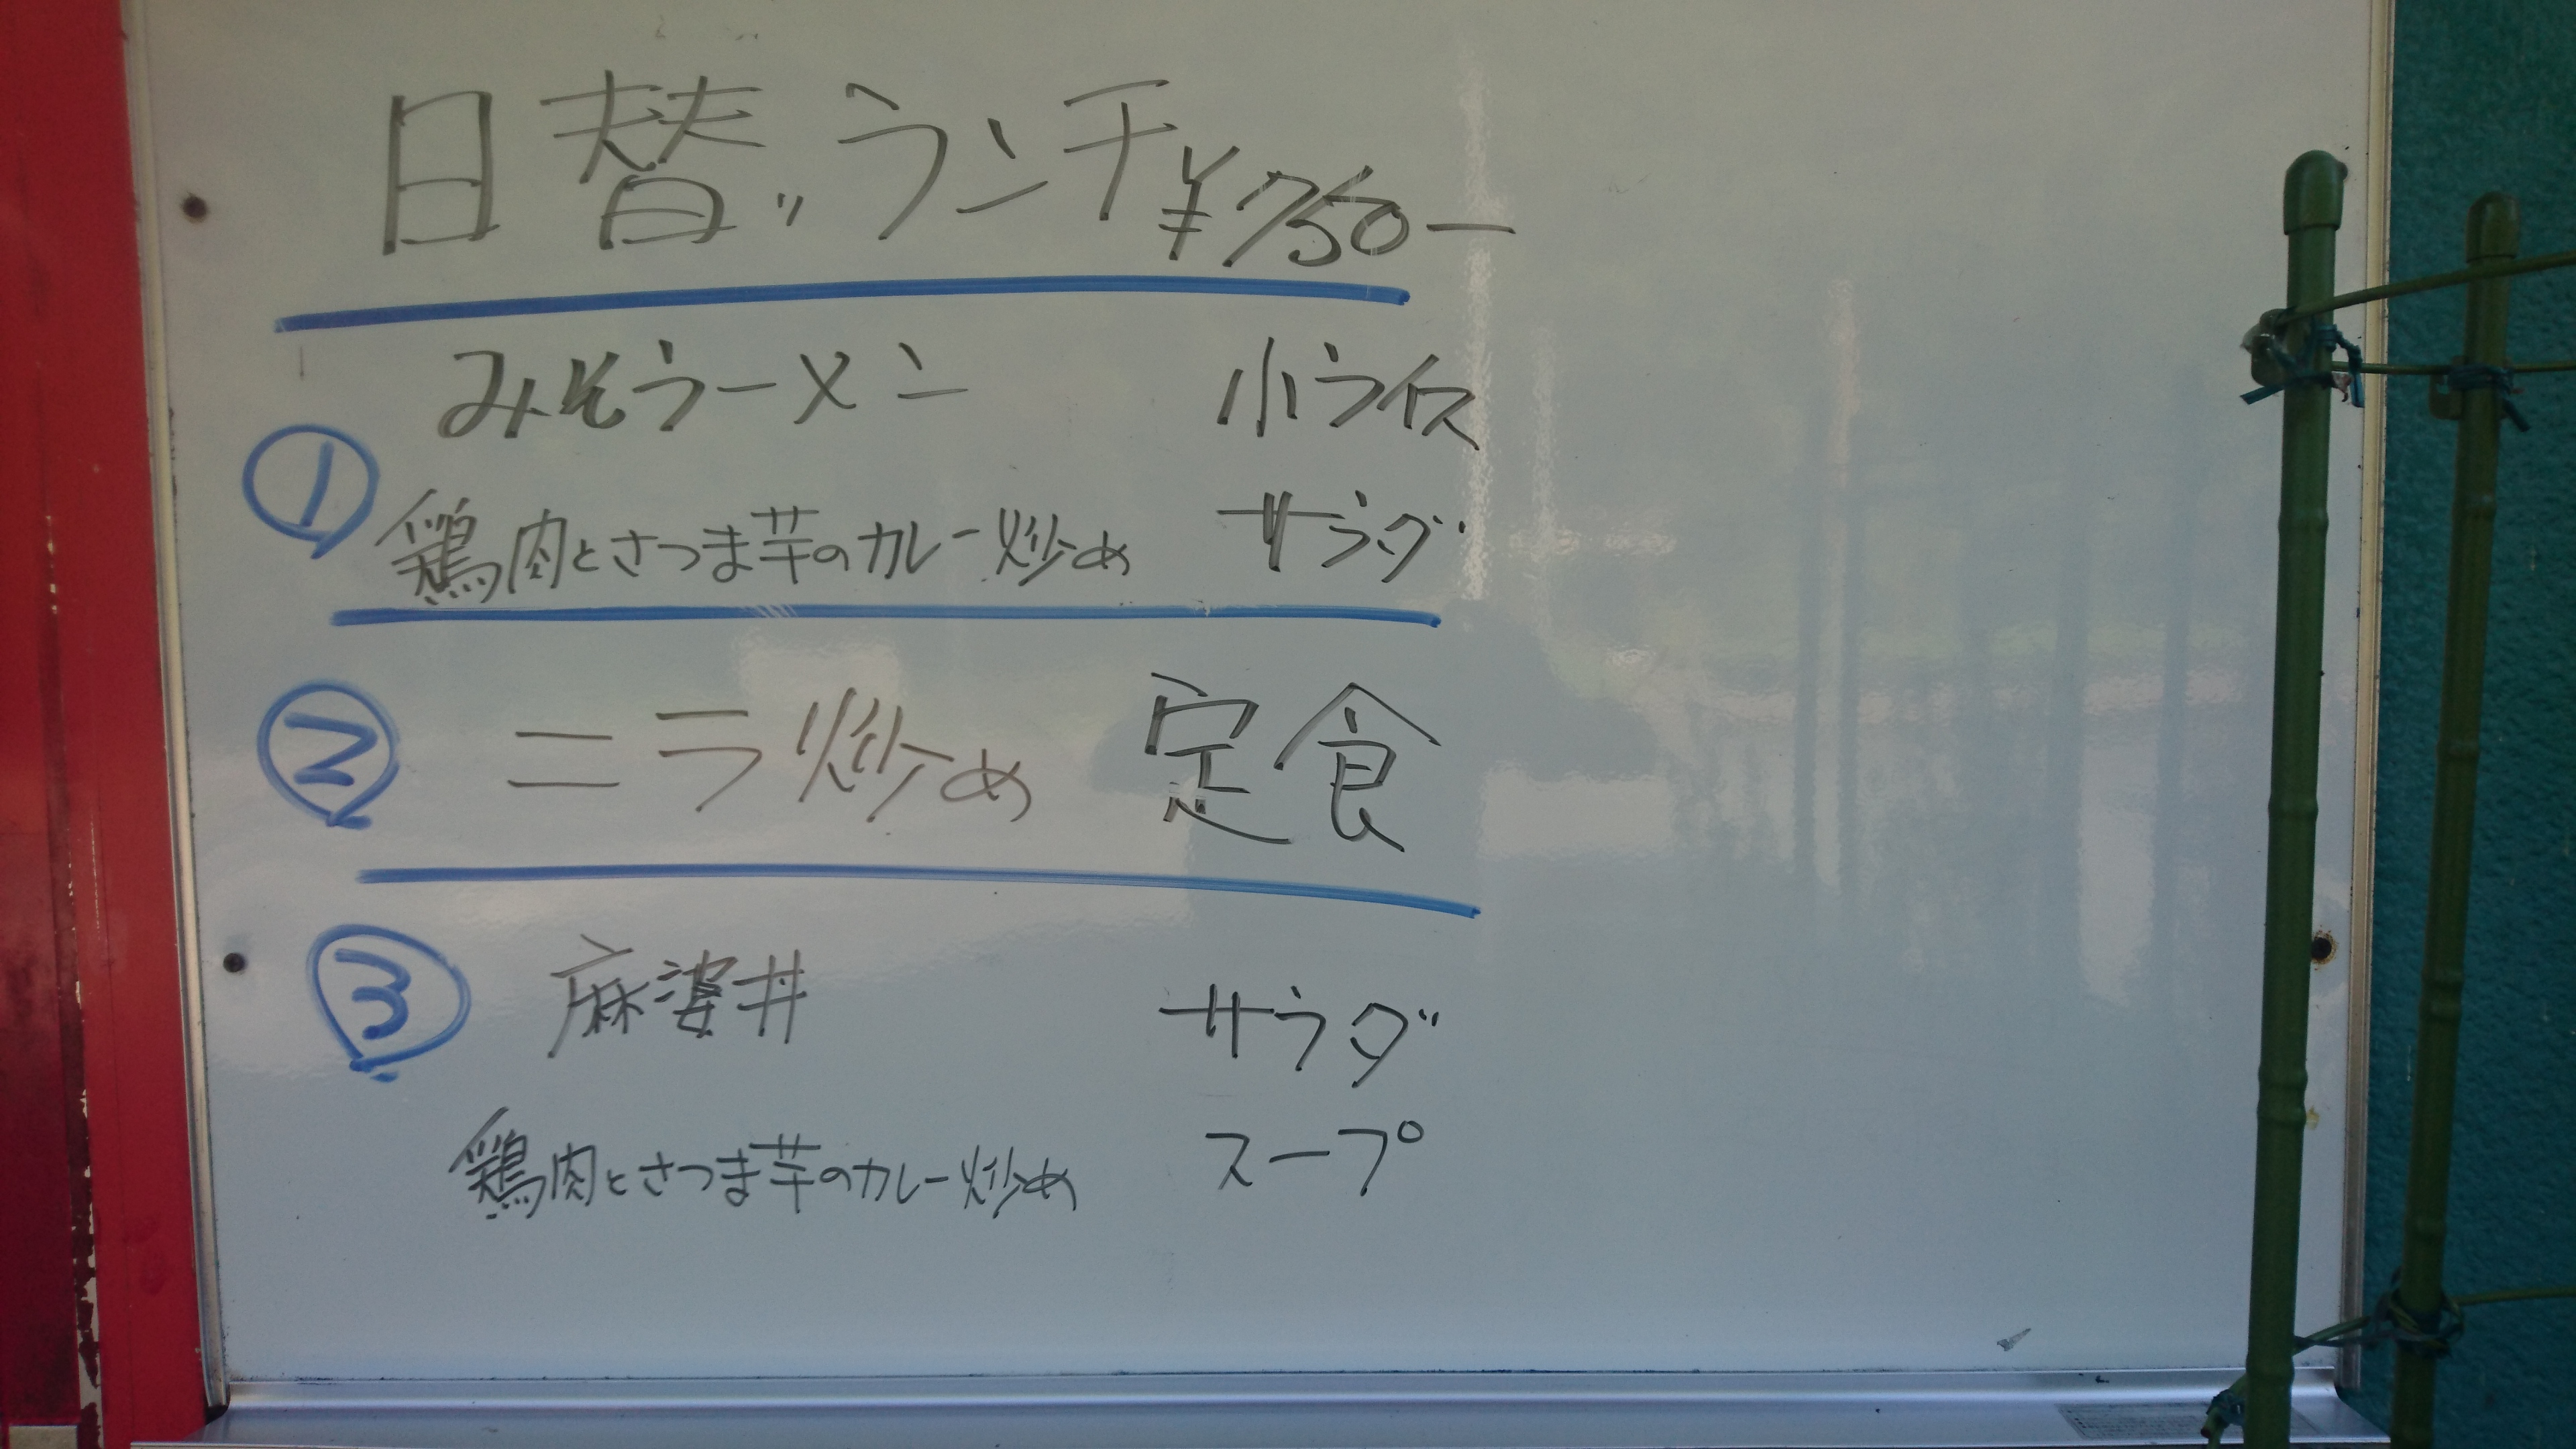 日替りランチ ¥750ー
みそラーメン 小ライス
① 鶏肉とさつま芋のカレー炒め サラダ
② ニラ炒め 定食
③ 麻婆丼 サラダ
鶏肉とさつま芋のカレー炒め スープ